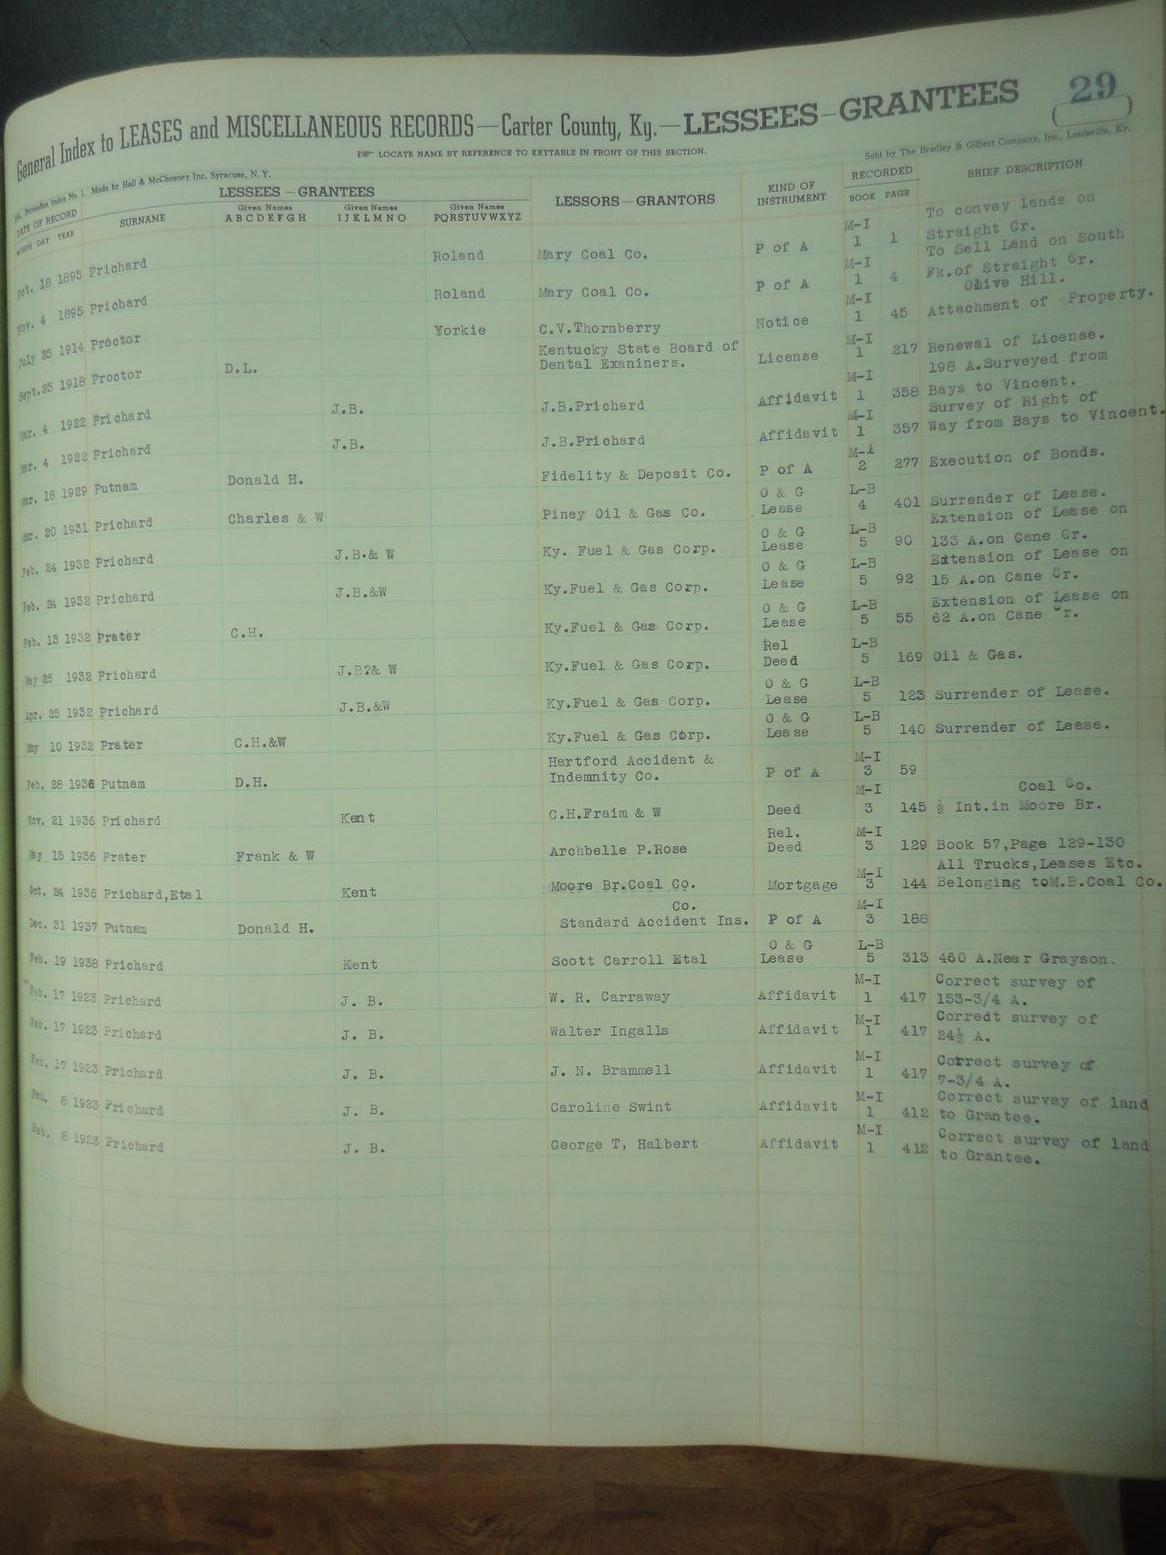 General Index to LEASES and MISCELLANEOUS RECORDS—Carter County, Ky.—LESSEES—GRANTEES 29
LOCATE NAME BY REFERENCE TO KEYTABLE IN FRONT OF THIS SECTION.
Index No. 1. Made by Hall & McChesney Inc, Syracuse, N. Y. Sold by The Bradley & Gilbert Company, Inc., Louisville, Ky.
DATE OF RECORD LESSEES—GRANTEES LESSORS—GRANTORS KIND OF INSTRUMENT RECORDED BRIEF DESCRIPTION
MONTH DAY YEAR SURNAME Given Names A B C D E F G H Given Names I J K L M N O Given Names PQRSTUVWXYZ BOOK PAGE
18 1895 Prichard Roland Mary Coal Co. P of A M-I 1 1 To convey lands on Straight Cr.
Nov. 4 1895 Prichard Roland Mary Coal Co. P of A M-I 1 4 To Sell Land on South Fk.of Straight Cr.
July 25 1914 Proctor Yorkie C.V.Thornberry Notice M-I 1 45 Olive Hill. Attachment of Property.
Sept.23 1918 Proctor D.L. Kentucky State Board of Dental Examiners. License M-I 1 217 Renewal of License.
Mar. 4 1922 Prichard J.B. J.B.Prichard Affidavit M-I 1 358 198 A.Surveyed from Bays to Vincent.
Mar. 4 1922 Prichard J.B. J.B.Prichard Affidavit M-I 1 357 Survey of Right of Way from Bays to Vincent.
Mar. 18 1929 Putnam Donald H. Fidelity & Deposit Co. P of A M-I 2 277 Execution of Bonds.
Mar. 20 1931 Prichard Charles & W Piney Oil & Gas Co. O & G Lease L-B 4 401 Surrender of Lease.
Feb. 24 1932 Prichard J.B.& W Ky. Fuel & Gas Corp. O & G Lease L-B 5 90 Extension of Lease on 133 A.on Cane Cr.
Feb. 24 1932 Prichard J.B.&W Ky.Fuel & Gas Corp. O & G Lease L-B 5 92 Extension of Lease on 15 A.on Cane Cr.
Feb. 13 1932 Prater C.H. Ky.Fuel & Gas Corp. O & G Lease L-B 5 55 Extension of Lease on 62 A.on Cane Cr.
May 25 1932 Prichard J.B?& W Ky.Fuel & Gas Corp. Rel Deed L-B 5 169 Oil & Gas.
Apr. 25 1932 Prichard J.B.&W Ky.Fuel & Gas Corp. O & G Lease L-B 5 123 Surrender of Lease.
May 10 1932 Prater C.H.&W Ky.Fuel & Gas Corp. O & G Lease L-B 5 140 Surrender of Lease.
Feb. 28 1936 Putnam D.H. Hartford Accident & Indemnity Co. P of A M-I 3 59
Nov. 21 1936 Prichard Kent C.H.Fraim & W Deed M-I 3 145 Coal Co. ½ Int.in Moore Br.
May 15 1936 Prater Frank & W Archbelle P.Rose Rel. Deed M-I 3 129 Book 57,Page 129-130
Oct. 24 1936 Prichard,Etal Kent Moore Br.Coal Co. Mortgage M-I 3 144 All Trucks,Leases Etc. Belonging toM.B.Coal Co.
Dec. 31 1937 Putnam Donald H. Co. Standard Accident Ins. P of A M-I 3 188
Feb. 19 1938 Prichard Kent Scott Carroll Etal O & G Lease L-B 5 313 460 A.Near Grayson.
Feb. 17 1923 Prichard J. B. W. R. Carraway Affidavit M-I 1 417 Correct survey of 153-3/4 A.
Feb. 17 1923 Prichard J. B. Walter Ingalls Affidavit M-I 1 417 Correct survey of 24½ A.
Feb. 17 1923 Prichard J. B. J. N. Brammell Affidavit M-I 1 417 Correct survey of 7-3/4 A.
Feb. 8 1923 Prichard J. B. Caroline Swint Affidavit M-I 1 412 Correct survey of land to Grantee.
Feb. 8 1923 Prichard J. B. George T, Halbert Affidavit M-I 1 412 Correct survey of land to Grantee.